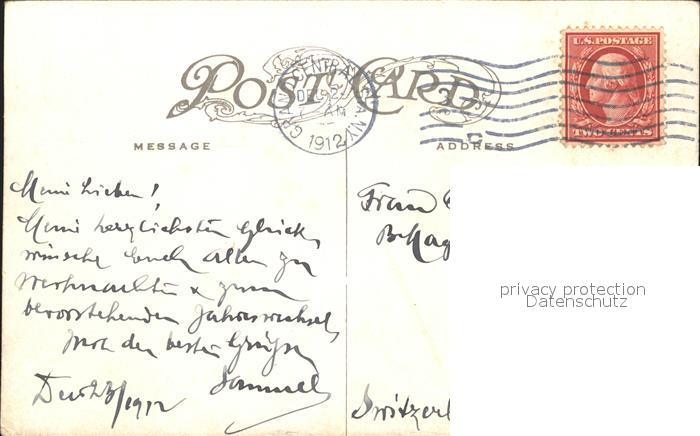 POST CARD
GRAND CENTRAL STA. N.Y.
DEC
AM
1912
U.S. POSTAGE
TWO CENTS
MESSAGE
ADDRESS
Meine Lieben!
Meine herzlichsten Glück
wünsche Euch allen zu
Weihnachten & zum
bevorstehenden Jahreswechsel,
Mit den besten Grüßen
Samuel
Dec 23/1912
Frau
B. Hag
Switzerl
privacy protection
Datenschutz